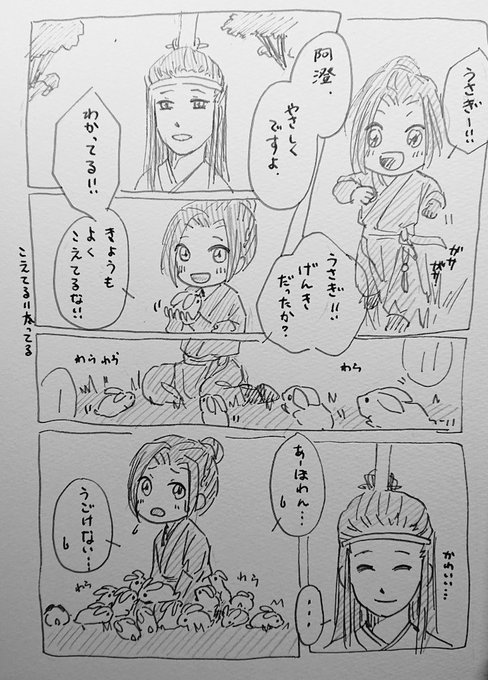 うさぎー!!
ガサ
ガサ
阿澄、
やさしく
ですよ。
わかってる!!
うさぎ!!
げんき
だったか?
きょうも
よく
こえてるな!!
こえてる=太ってる
わら わら
わら
あーほわん…
うごけない…
わら
わら
かわいい…
…